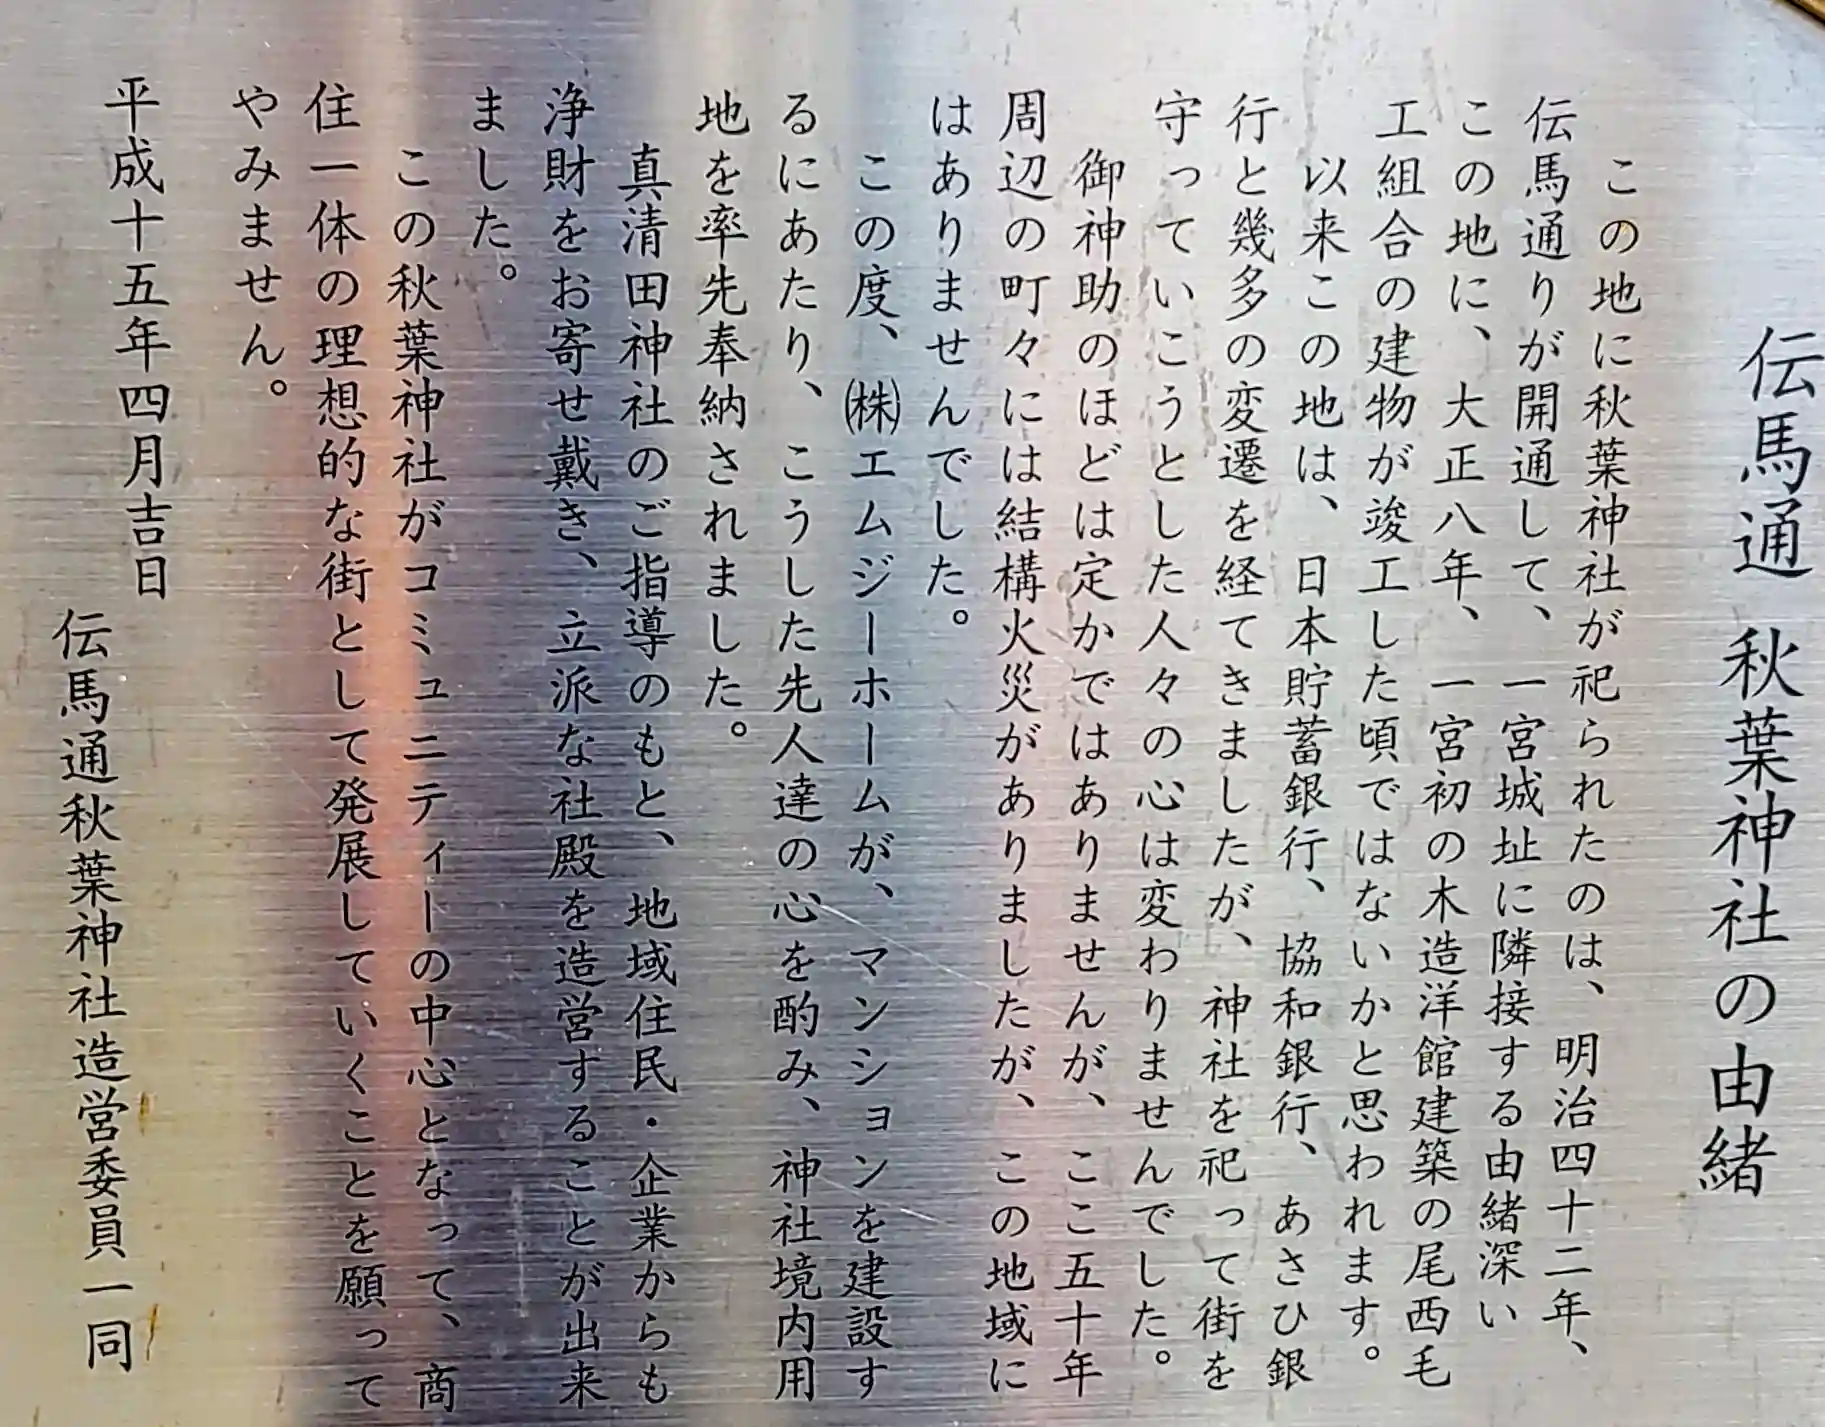 伝馬通 秋葉神社の由緒
この地に秋葉神社が祀られたのは、明治四十二年、
伝馬通りが開通して、一宮城址に隣接する由緒深い
この地に、大正八年、一宮初の木造洋館建築の尾西毛
工組合の建物が竣工した頃ではないかと思われます。
以来この地は、日本貯蓄銀行、協和銀行、あさひ銀
行と幾多の変遷を経てきましたが、神社を祀って街を
守っていこうとした人々の心は変わりませんでした。
御神助のほどは定かではありませんが、ここ五十年
周辺の町々には結構火災がありましたが、この地域に
はありませんでした。
この度、㈱エムジーホームが、マンションを建設す
るにあたり、こうした先人達の心を酌み、神社境内用
地を率先奉納されました。
真清田神社のご指導のもと、地域住民・企業からも
浄財をお寄せ戴き、立派な社殿を造営することが出来
ました。
この秋葉神社がコミュニティーの中心となって、商
住一体の理想的な街として発展していくことを願って
やみません。
平成十五年四月吉日
伝馬通秋葉神社造営委員一同